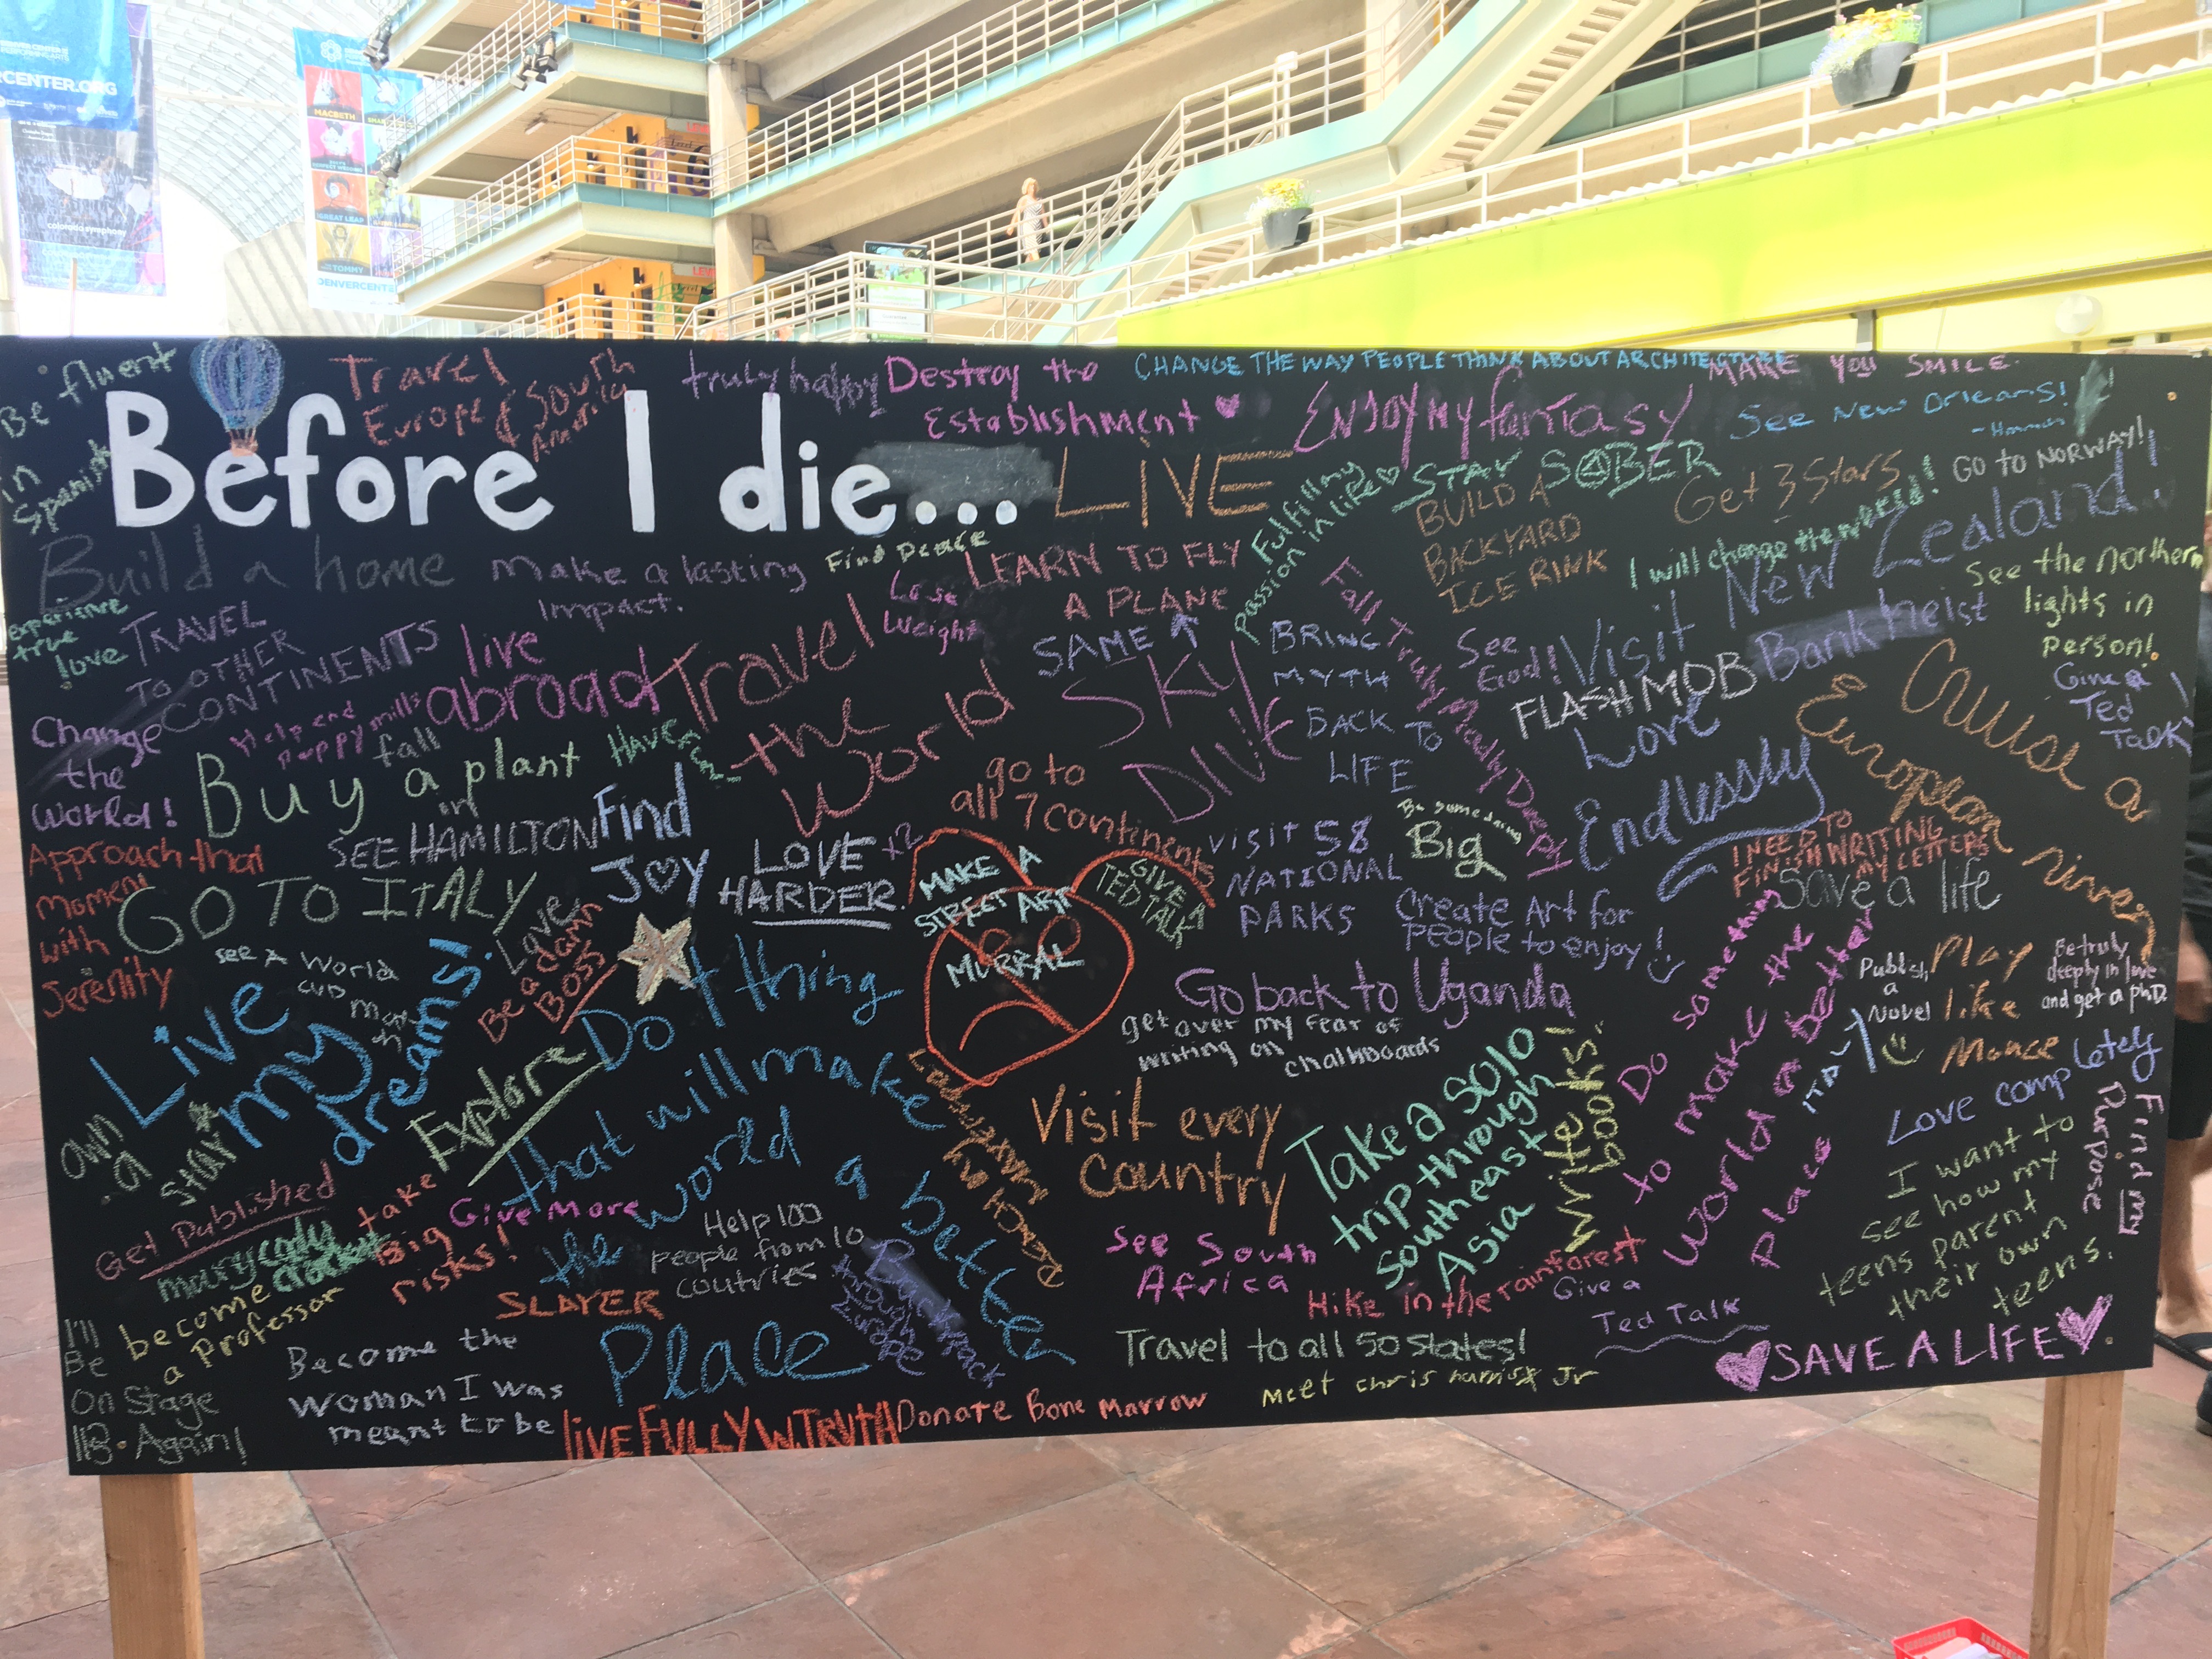 CENTER.ORG
colorado symphony
MACBETH
GREAT LEAP
TOMMY
DENVERCENTE
Be fluent
in
Spanish
Travel
Europe & South
America
truly happy
Destroy the
Establishment
CHANGE THE WAY PEOPLE THINK ABOUT ARCHITECTURE
MAKE YOU SMILE.
Before I die...
LIVE
ENJOY MY fantasy
See New Orleans!
STAY SOBER
Fulfilling
passion in life
BUILD A
BACKYARD
ICE RINK
Get 3 Stars
I will change the world!
GO TO NORWAY!
Build a home
Make a lasting
impact.
Find peace
Lose
Weight
LEARN TO FLY
A PLANE
SAME
Visit New Zealand!
See the northern
lights in
person!
experience
true
love
TRAVEL
TO OTHER
CONTINENTS
live
abroad
Travel
the
World
SKY
DIVE
BRING
MYTH
BACK TO
LIFE
Fall Truly Madly Deeply
See
God!
FLASH MOB
Bank heist
Give a
Ted
Talk!
Change
the
World!
Help end
puppy mills
Buy a plant
fall
in
Love
HAVE Fun
Love
Endlessly
Cruise a
European
river
SEE HAMILTON
Find
JOY
LOVE x2
HARDER.
go to
all 7 continents
visit 58
NATIONAL
PARKS
Be something
Big
I NEED TO
FINISH WRITING
MY LETTERS
Save a life
Approach that
moment
with
Serenity
GO TO ITALY
Be a damn
BOSS
MAKE A
STREET ART
MURRAL
GIVE A
TED TALK
Create Art for
people to enjoy!
see A World
cup match
Live
my
dreams!
Do 1 thing
that will make
the world a better
Place
Go back to Uganda
get over my fear of
writing on
chalkboards
Do something
to make the
World a better
place
Publish
a
Novel
Play
like
Mance
Be truly
deeply in love
and get a phD.
ITALY
own
a
star
Explore
REACH MY
Visit every
Country
Take a solo
trip through
southeast
Asia
Write books!
Love completely
Find my
Purpose
Get Published
take
Big
risks!
Give More
Help 100
people from 10
coutries
I want to
see how my
teens parent
their own
teens.
become
a professor
SLAYER
Backpack
through
Europe
See South
Africa
Hike in the rainforest
Give a
Ted Talk
I'll
Be
On Stage
Again!
Become the
woman I was
meant to be
Travel to all 50 states!
Meet chris harris Jr
SAVE A LIFE
LiVE FULLY W. TRUTH
Donate Bone Marrow